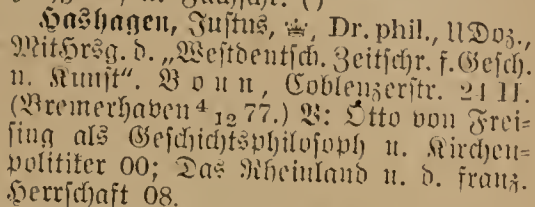 Hashagen, Justus, Dr. phil., UDoz.,
MitHrsg. d. „Westdeutsch. Zeitschr. f. Gesch.
u. Kunst“. Bonn, Coblenzerstr. 21 II.
(Bremerhaven 4 12 77.) V: Otto von Frei=
sing als Geschichtsphilosoph u. Kirchen=
politiker 00; Das Rheinland u. d. franz.
Herrschaft 08.